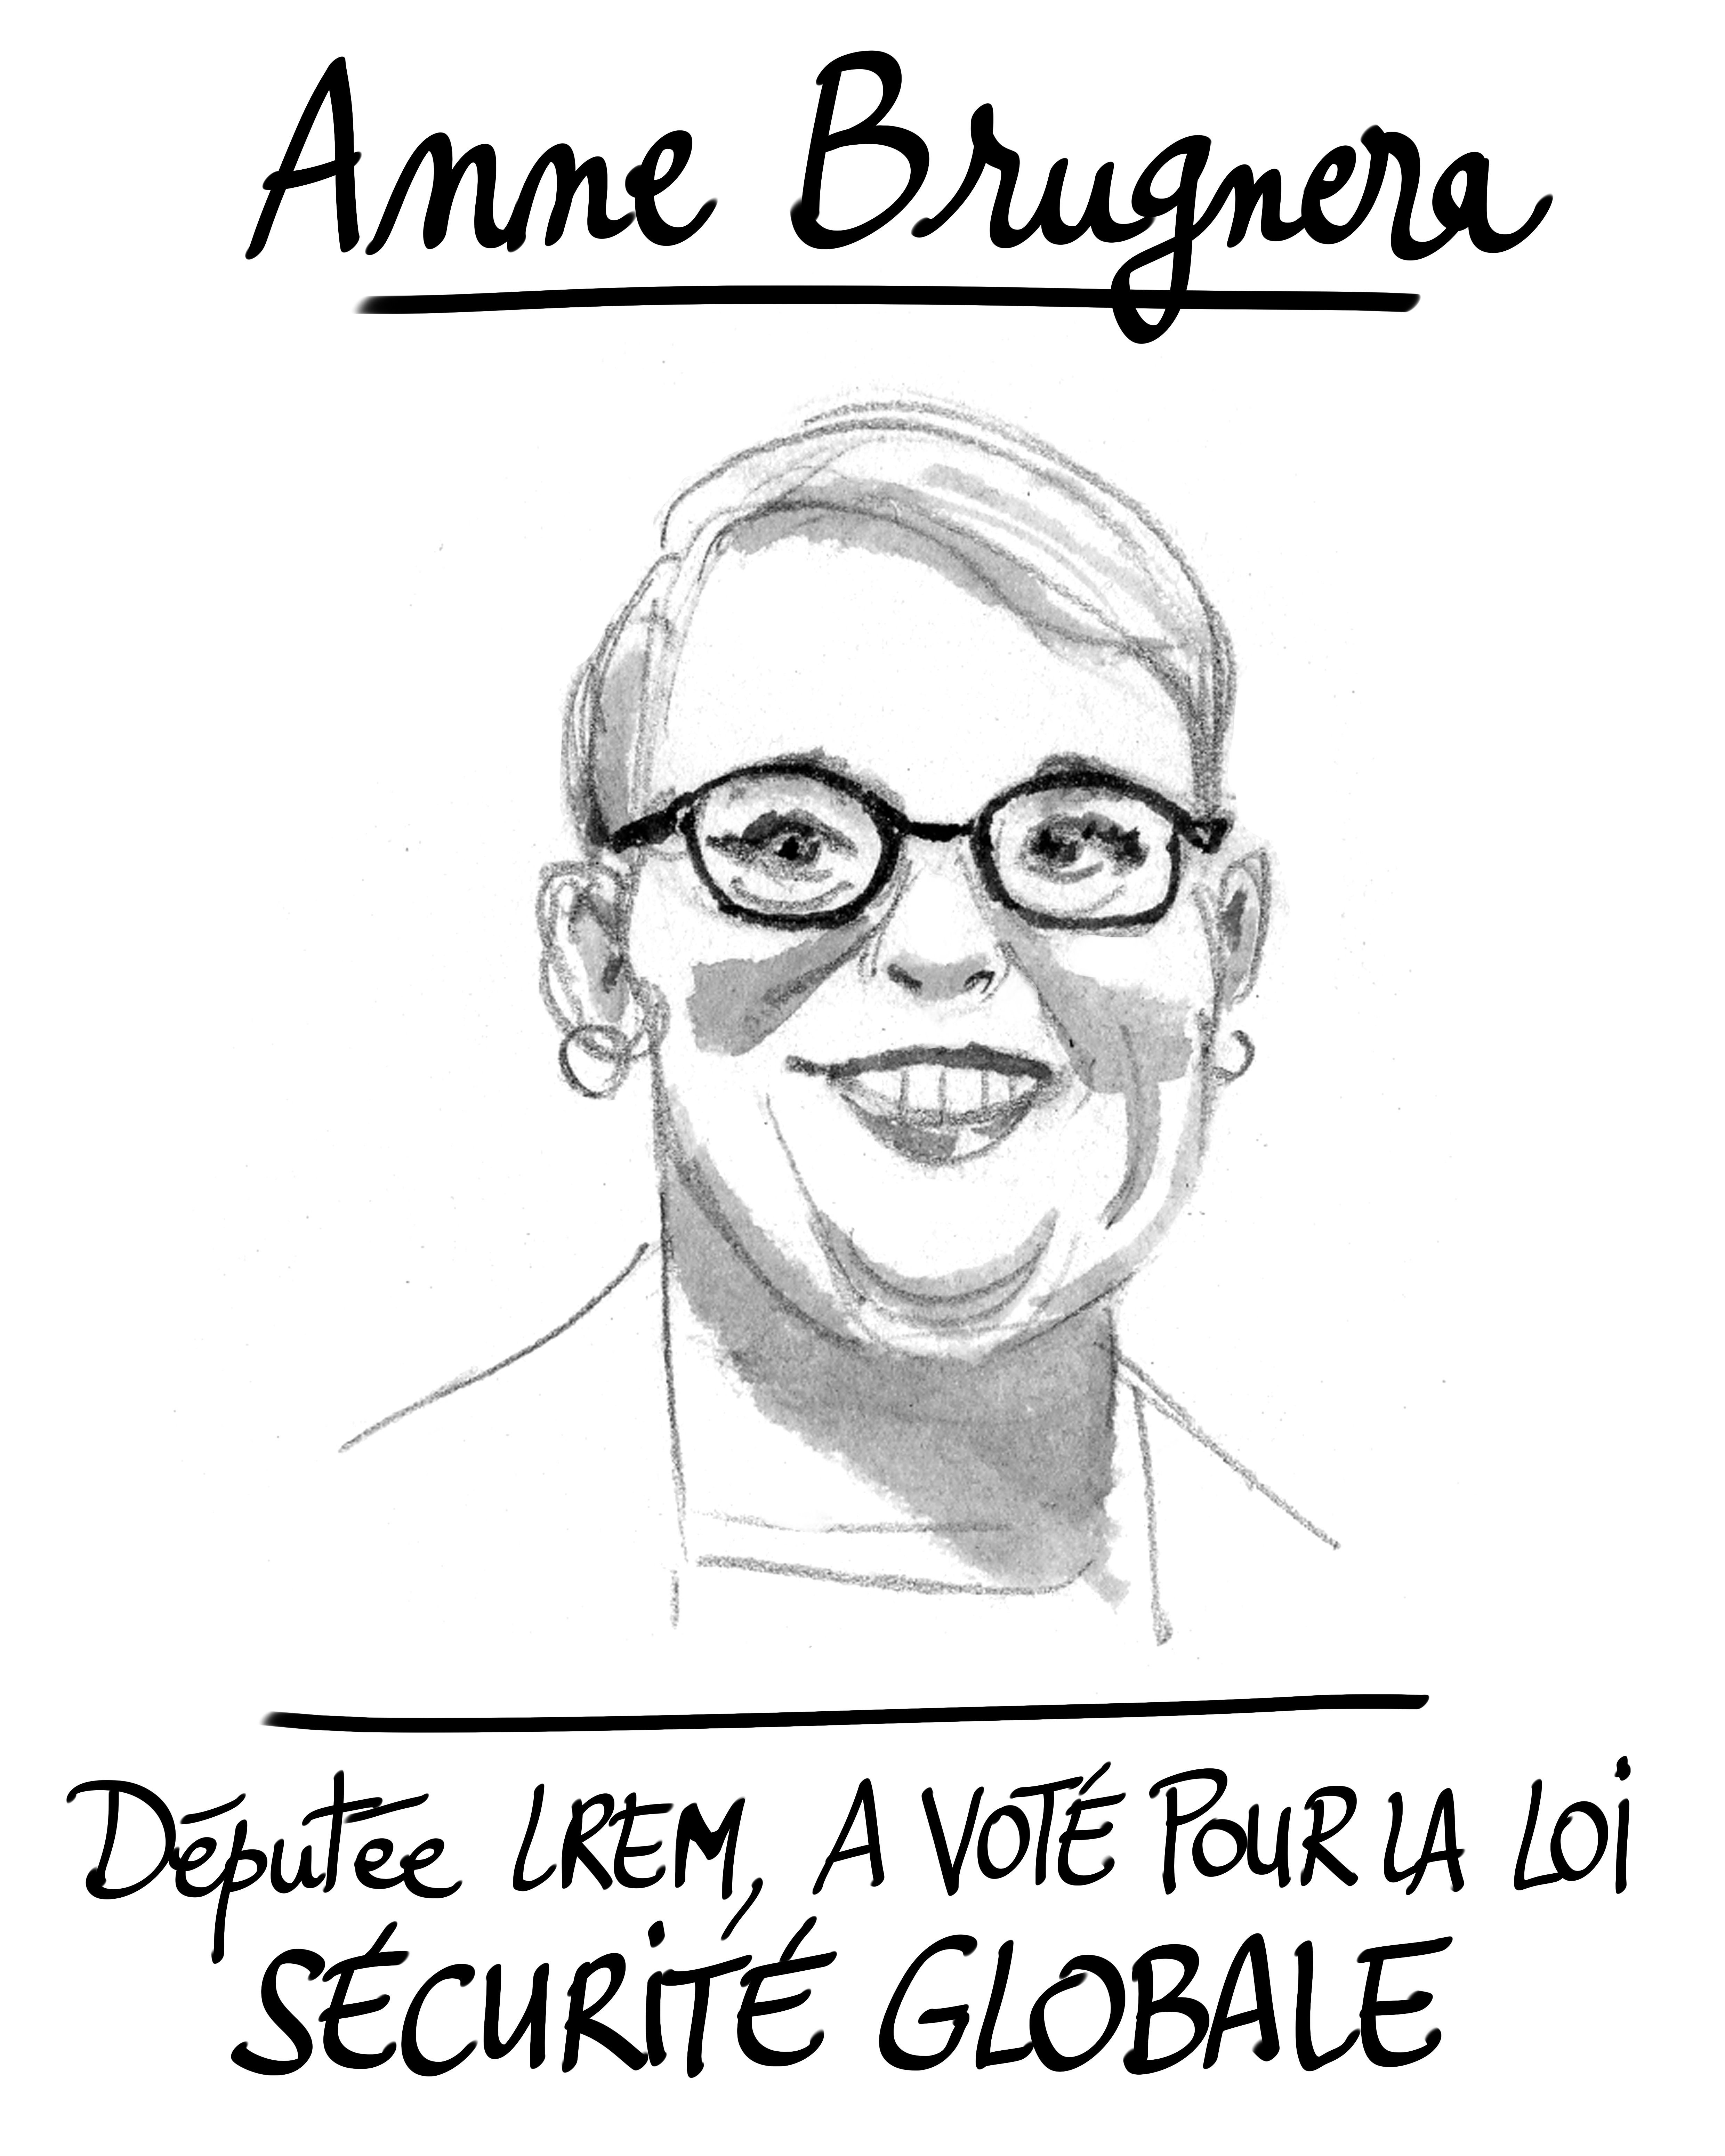 Anne Brugnera
Députée LREM, A VOTÉ POUR LA LOi
SÉCURiTÉ GLOBALE